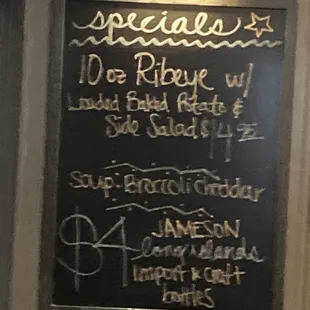 specials
10 oz Ribeye w/
Loaded Baked Potato &
Side Salad $14
Soup: Broccoli Cheddar
$4
JAMESON
long islands
import & craft
bottles